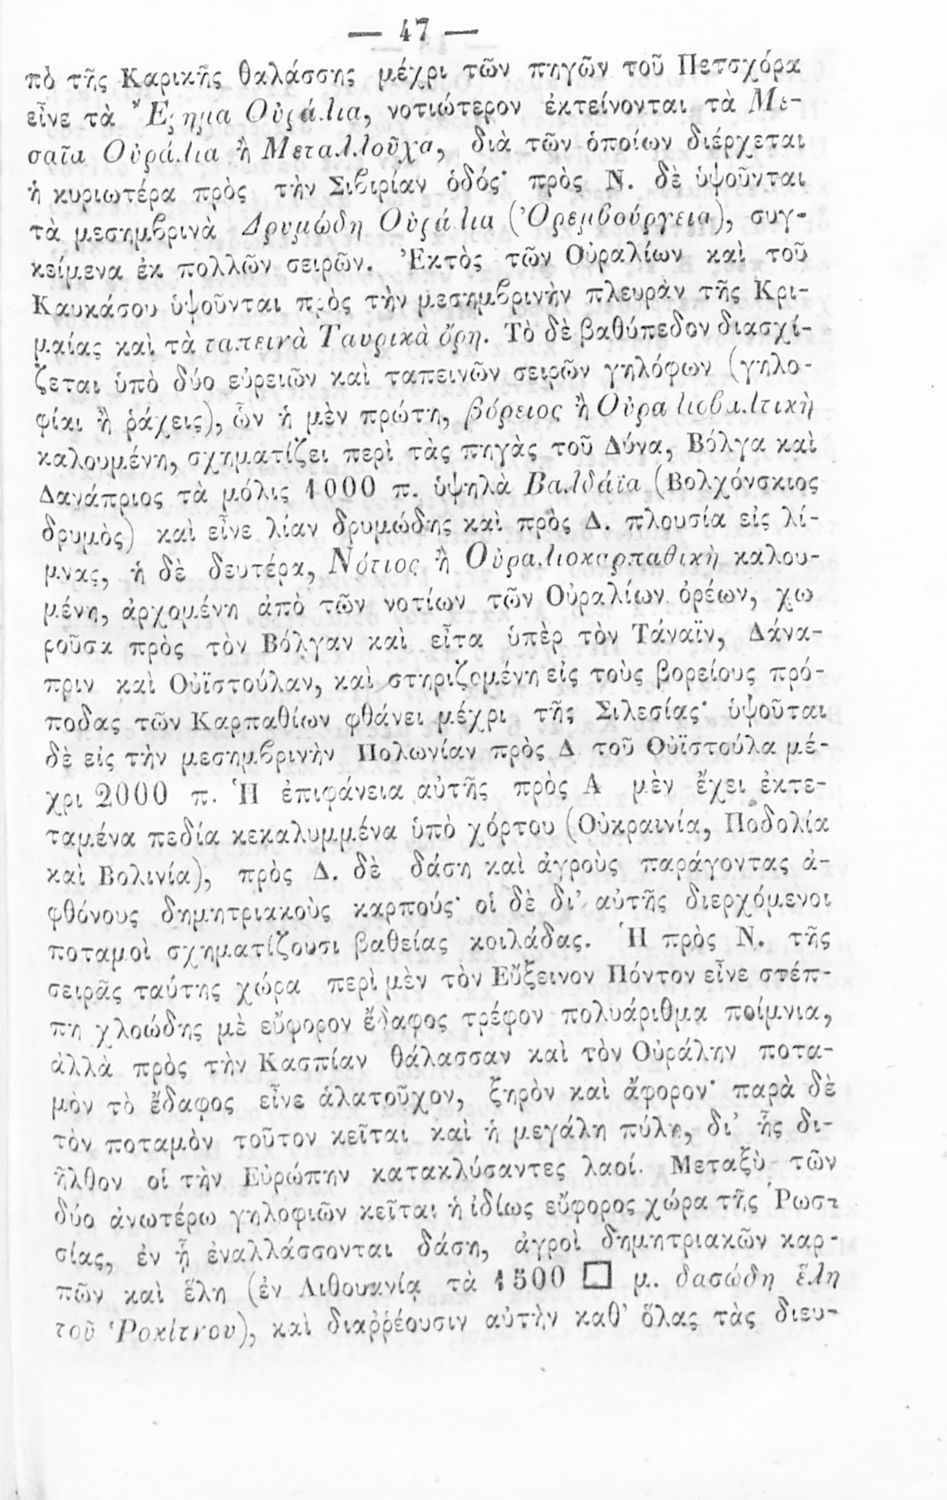 — 47 —
πὸ τῆς Καρικῆς θαλάσσης μέχρι τῶν πηγῶν τοῦ Πετσχόρα
εἶνε τὰ Ἔρημα Οὐράλια, νοτιώτερον ἐκτείνονται τὰ Με-
σαῖα Οὐράλια ἢ Μεταλλοῦχα, διὰ τῶν ὁποίων διέρχεται
ἡ κυριωτέρα πρὸς τὴν Σιβιρίαν ὁδός· πρὸς Ν. δὲ ὑψοῦνται
τὰ μεσημβρινὰ Δρυμώδη Οὐράλια (Ὀρεμβούργεια), συγ-
κείμενα ἐκ πολλῶν σειρῶν. Ἐκτὸς τῶν Οὐραλίων καὶ τοῦ
Καυκάσου ὑψοῦνται πρὸς τὴν μεσημβρινὴν πλευρὰν τῆς Κρι-
μαίας καὶ τὰ ταπεινὰ Ταυρικὰ ὄρη. Τὸ δὲ βαθύπεδον διασχί-
ζεται ὑπὸ δύο εὐρειῶν καὶ ταπεινῶν σειρῶν γηλόφων (γηλο-
φίαι ἢ ῥάχεις), ὧν ἡ μὲν πρώτη, βόρειος ἢ Οὐραλιοβαλτικὴ
καλουμένη, σχηματίζει περὶ τὰς πηγὰς τοῦ Δύνα, Βόλγα καὶ
Δανάπριος τὰ μόλις 1000 π. ὑψηλὰ Βαλδάϊα (Βολχόνσκιος
δρυμὸς) καὶ εἶνε λίαν δρυμώδης καὶ πρὸς Δ. πλουσία εἰς λί-
μνας, ἡ δὲ δευτέρα, Νότιος ἢ Οὐραλιοκαρπαθικὴ καλου-
μένη, ἀρχομένη ἀπὸ τῶν νοτίων τῶν Οὐραλίων ὀρέων, χω
ροῦσα πρὸς τὸν Βόλγαν καὶ εἶτα ὑπὲρ τὸν Τάναϊν, Δάνα-
πριν καὶ Οὐϊστούλαν, καὶ στηριζομένη εἰς τοὺς βορείους πρό-
ποδας τῶν Καρπαθίων φθάνει μέχρι τῆς Σιλεσίας· ὑψοῦται
δὲ εἰς τὴν μεσημβρινὴν Πολωνίαν πρὸς Δ τοῦ Οὐϊστούλα μέ-
χρι 2000 π. Ἡ ἐπιφάνεια αὐτῆς πρὸς Α μὲν ἔχει ἐκτε-
ταμένα πεδία κεκαλυμμένα ὑπὸ χόρτου (Οὐκραινία, Ποδολία
καὶ Βολινία), πρὸς Δ. δὲ δάση καὶ ἀγροὺς παράγοντας ἀ-
φθόνους δημητριακοὺς καρπούς· οἱ δὲ δι' αὐτῆς διερχόμενοι
ποταμοὶ σχηματίζουσι βαθείας κοιλάδας. Ἡ πρὸς Ν. τῆς
σειρᾶς ταύτης χώρα περὶ μὲν τὸν Εὔξεινον Πόντον εἶνε στέπ-
πη χλοώδης μὲ εὔφορον ἔδαφος τρέφον πολυάριθμα ποίμνια,
ἀλλὰ πρὸς τὴν Κασπίαν θάλασσαν καὶ τὸν Οὐράλην ποτα-
μὸν τὸ ἔδαφος εἶνε ἁλατοῦχον, ξηρὸν καὶ ἄφορον· παρὰ δὲ
τὸν ποταμὸν τοῦτον κεῖται καὶ ἡ μεγάλη πύλη, δι' ἧς δι-
ῆλθον οἱ τὴν Εὐρώπην κατακλύσαντες λαοί. Μεταξὺ τῶν
δύο ἀνωτέρω γηλοφιῶν κεῖται ἡ ἰδίως εὔφορος χώρα τῆς Ῥωσ-
σίας, ἐν ᾗ ἐναλλάσσονται δάση, ἀγροὶ δημητριακῶν καρ-
πῶν καὶ ἕλη (ἐν Λιθουανίᾳ τὰ 1500 □ μ. δασώδη ἕλη
τοῦ Ῥοκίτνου), καὶ διαῤῥέουσιν αὐτὴν καθ' ὅλας τὰς διευ-